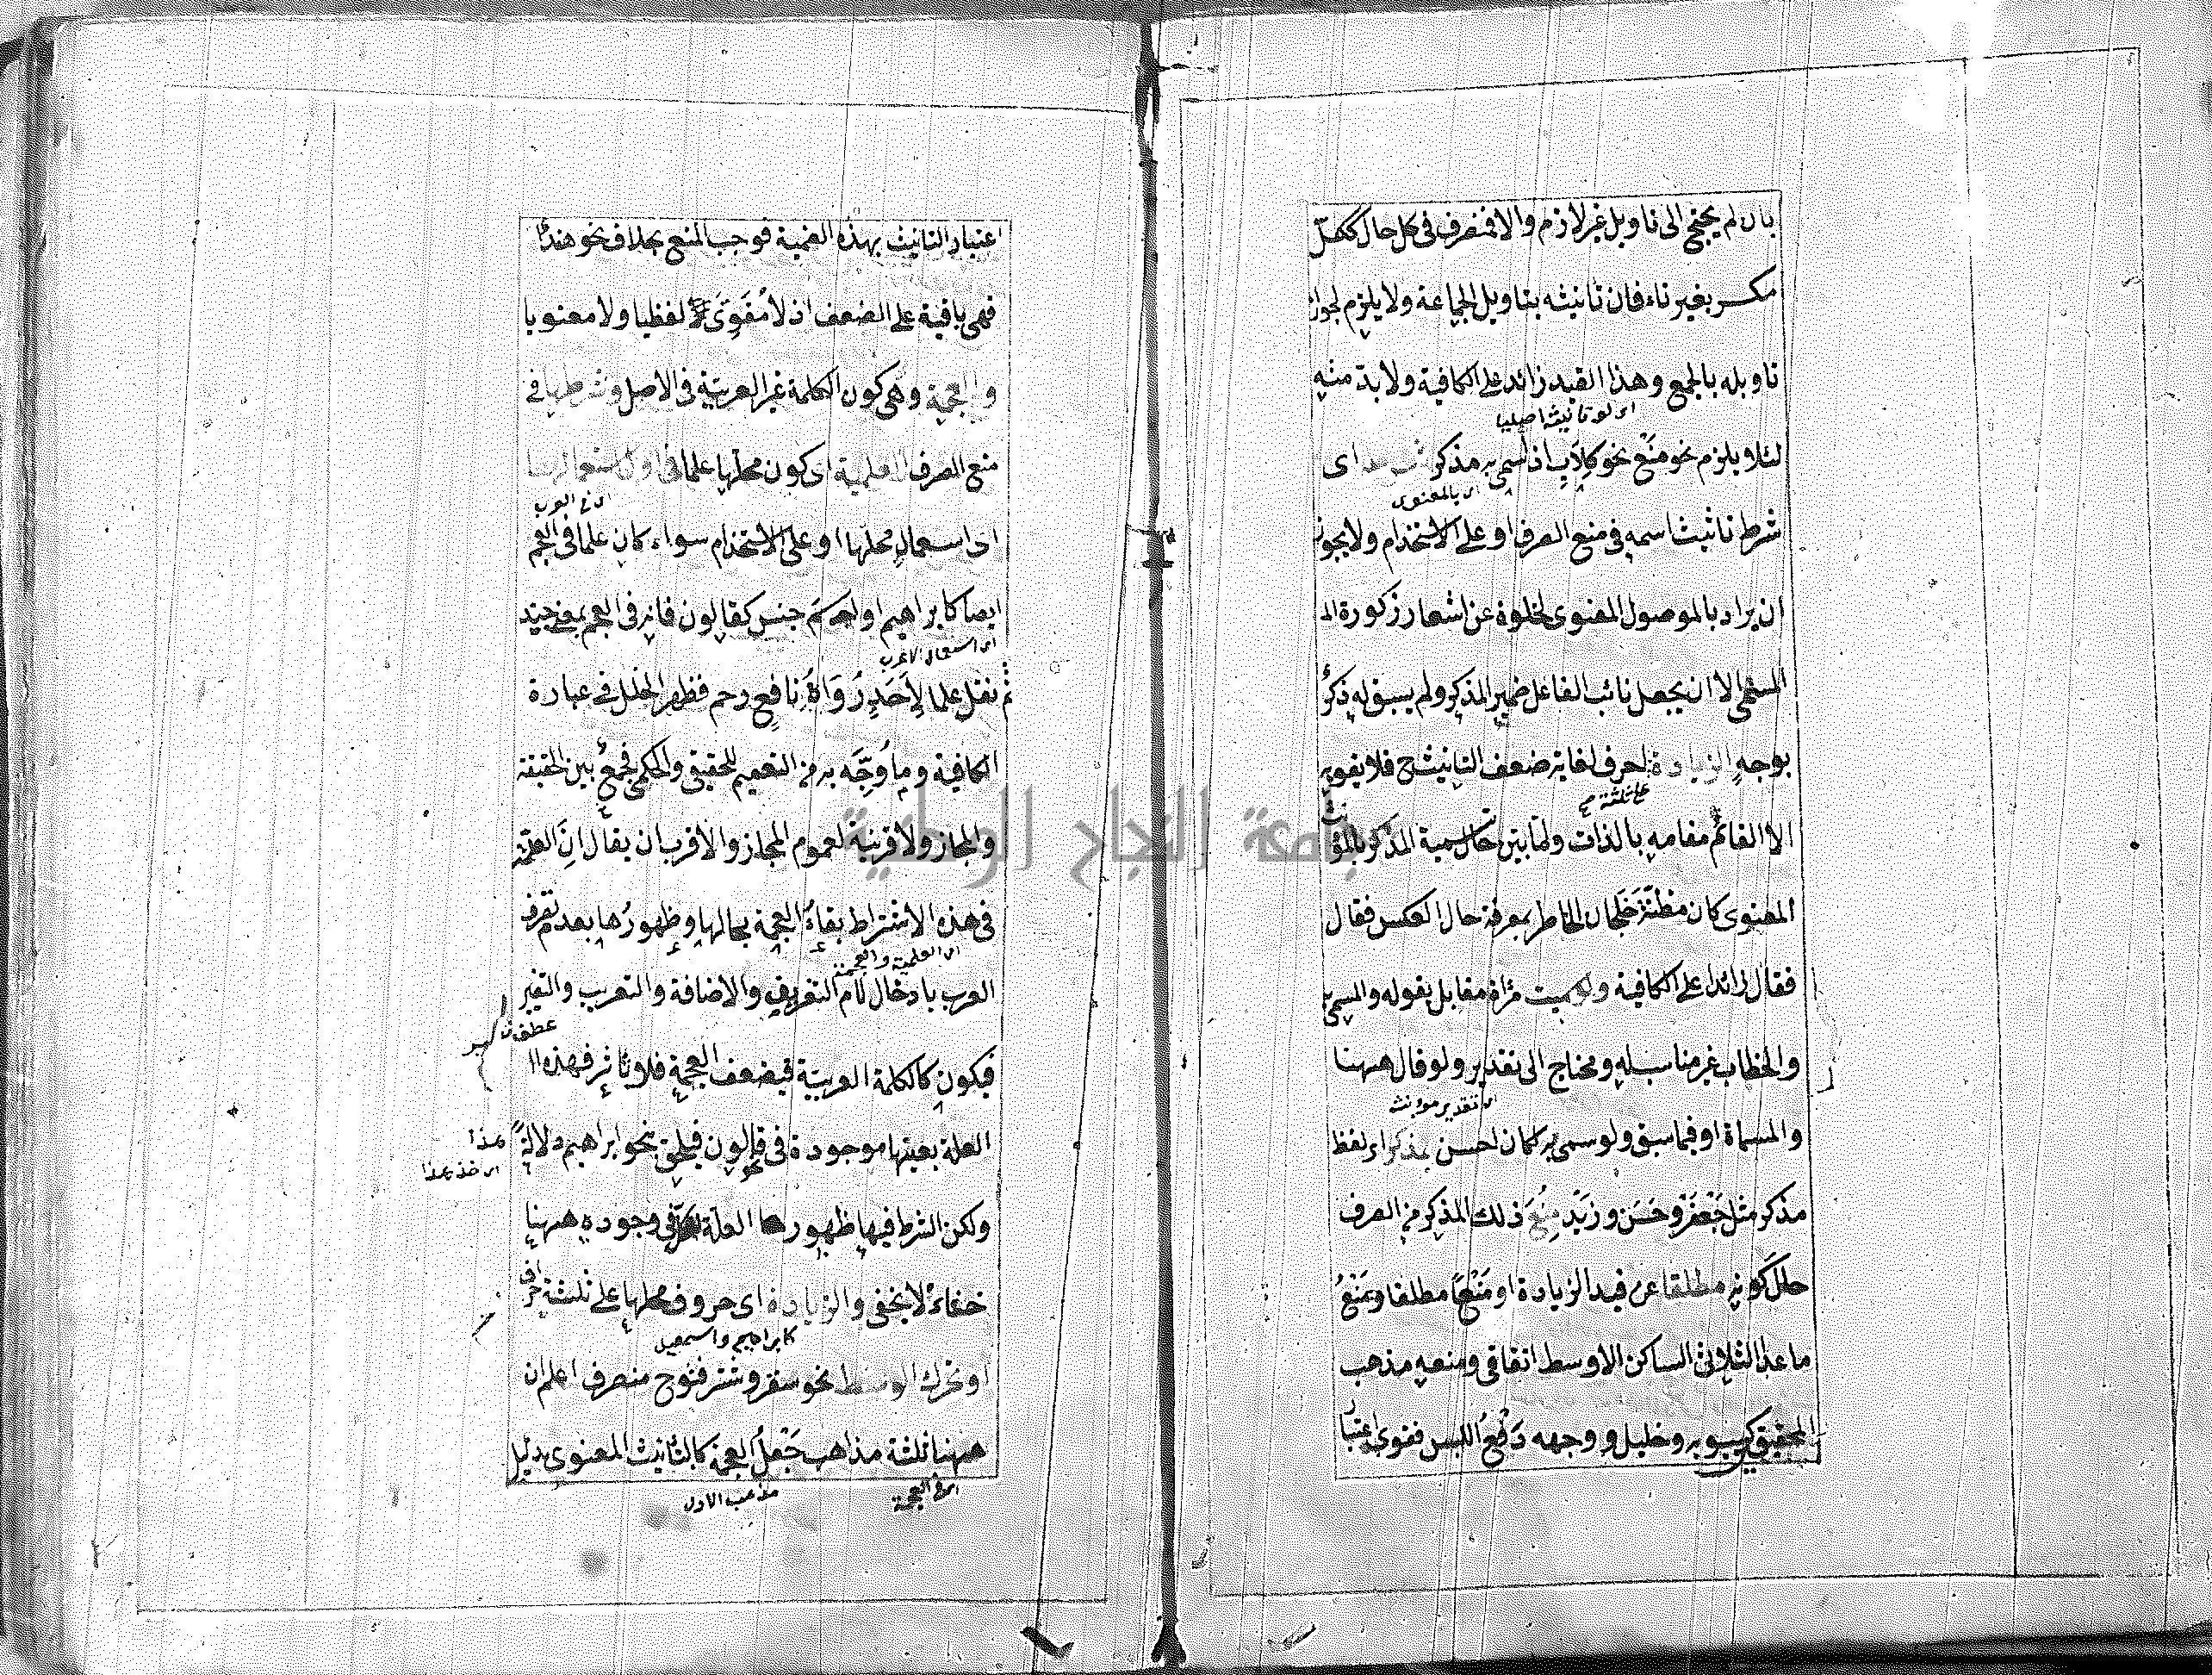 بان لم يحتج الى تاويل غير لازم والا فمنصرف فى كل حال ككل
مكسر بغير تاء فان تانيثه بتاويل الجماعة ولا يلزم لجواز
تاويله بالجمع وهذا القيد زائد على الكافية ولا بد منه
اى لو تانيثه اصليا
لئلا يلزم نحو مَنْع نحو كِلَابٍ اذ سمى به مذكر اى
اى بالمعنوى
شرط تانيث اسمه فى منع الصرف او على الاستخدام ولا يجوز
ان يراد بالموصول المعنوى لخلوه عن اشعار ذكورة الـ
المسمى الا ان يجعل نائب الفاعل ضمير المذكر ولم يسبق له ذكرٌ
بوجهٍ الزيادة لحرف لغاية ضعف التانيث ح فلا يقويه
على ثلثة صح
الا القائم مقامه بالذات ولما بين حال تسمية المذكر بالمؤنث
المعنوى كان مظنّة خَلَجان الخاطر بمعرفة حال العكس فقال
فقال زائدا على الكافية ولو سميت مرأة مقابل بقوله والمسمى به
والخطاب غير مناسب له ومحتاج الى تقدير ولو قال ههنا
اى تقدير مؤنث
والمسماة او فيما سبق ولو سمى به لكان احسن بمذكر اى لفظ
مذكر مثل جَعْفَر وحَسَن وزَيْد مُنِعَ ذلك المذكر من الصرف
حال كونه مطلقا عن قيد الزيادة او مَنْعًا مطلقا ومَنْعُ
ما عدا الثلاثى الساكن الاوسط اتفاقى ومنعه مذهب
المحققين كسيبويه وخليل ووجهه دَفْعُ اللبس فقوى اعتبار
اعتبار التانيث بهذه الضميمة فوجب المنع بخلاف نحو هندٌ
فهى باقية على الضعف اذ لا مُقَوِّىَ لفظيا ولا معنويا
والعجمة وهى كون الكلمة غير العربية فى الاصل وشرطها فى
منع الصرف العلمية اى كون محلها علما فى اول استعمالها
اى فى العرب
اى استعمالِ محلها او على الاستخدام سواء كان علما فى العجم
ايضا كابراهيم او اسم جنس كقالون فانه فى العجم بمعنى جيد
اى استعمال العرب
ثم نقل علما لِأَحَدِ رُوَاةُ نافعٍ رحم فظهر الخلل فى عبارة
الكافية وما وُجِّه به من التعميم للحقيقى والحكمى فجمعٌ بين الحقيقة
والمجاز ولا قرينة لعموم المجاز والاقرب ان يقال انّ العلّة
فى هذه الاشتراط بقاءُ العجمة بحالها وظهورُها بعدم تصرف
اى العلمية والعجمة
العرب بادخال لام التعريف والاضافة والتعريب والتغيير
عطف تفسير
فيكون كالكلمة العربية فيضعف العجمة فلا تاثير فهذه ا
العلة بعينها موجودة فى قالون فيلحق بنحو ابراهيم دلالةً هذا
اى خذ هذا
ولكن الشرط فيها ظهور العلة فى وجوده ههنا
خفاءٌ لا يخفى والزيادة اى حروف محلها على ثلثة احرف
كابراهيم واسمعيل
او تحرك الوسط نحو سقر وشتر فنوح منصرف اعلم ان
ههنا ثلثة مذاهب جَعْلُ العجمة كالتانيث المعنوى بدليل
اى فى العجمة
مذهب الاول
جامعة النجاح الوطنية